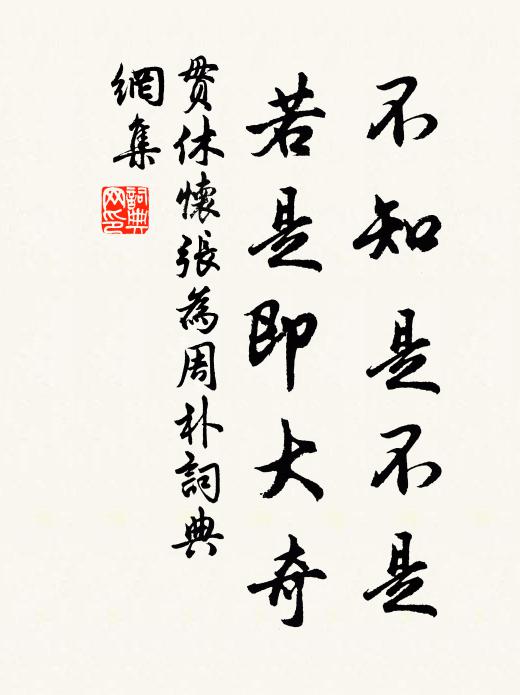 不知是不是
若是即大奇
貫休懷張為周朴詞典
網集
詞典网印